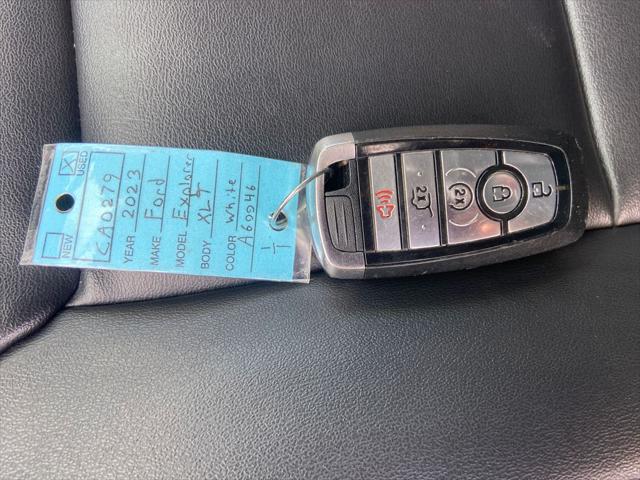 NEW X USED
CA0279
YEAR 2023
MAKE Ford
MODEL Explorer
BODY XLT
COLOR White
A60946
1/1
2x
2x